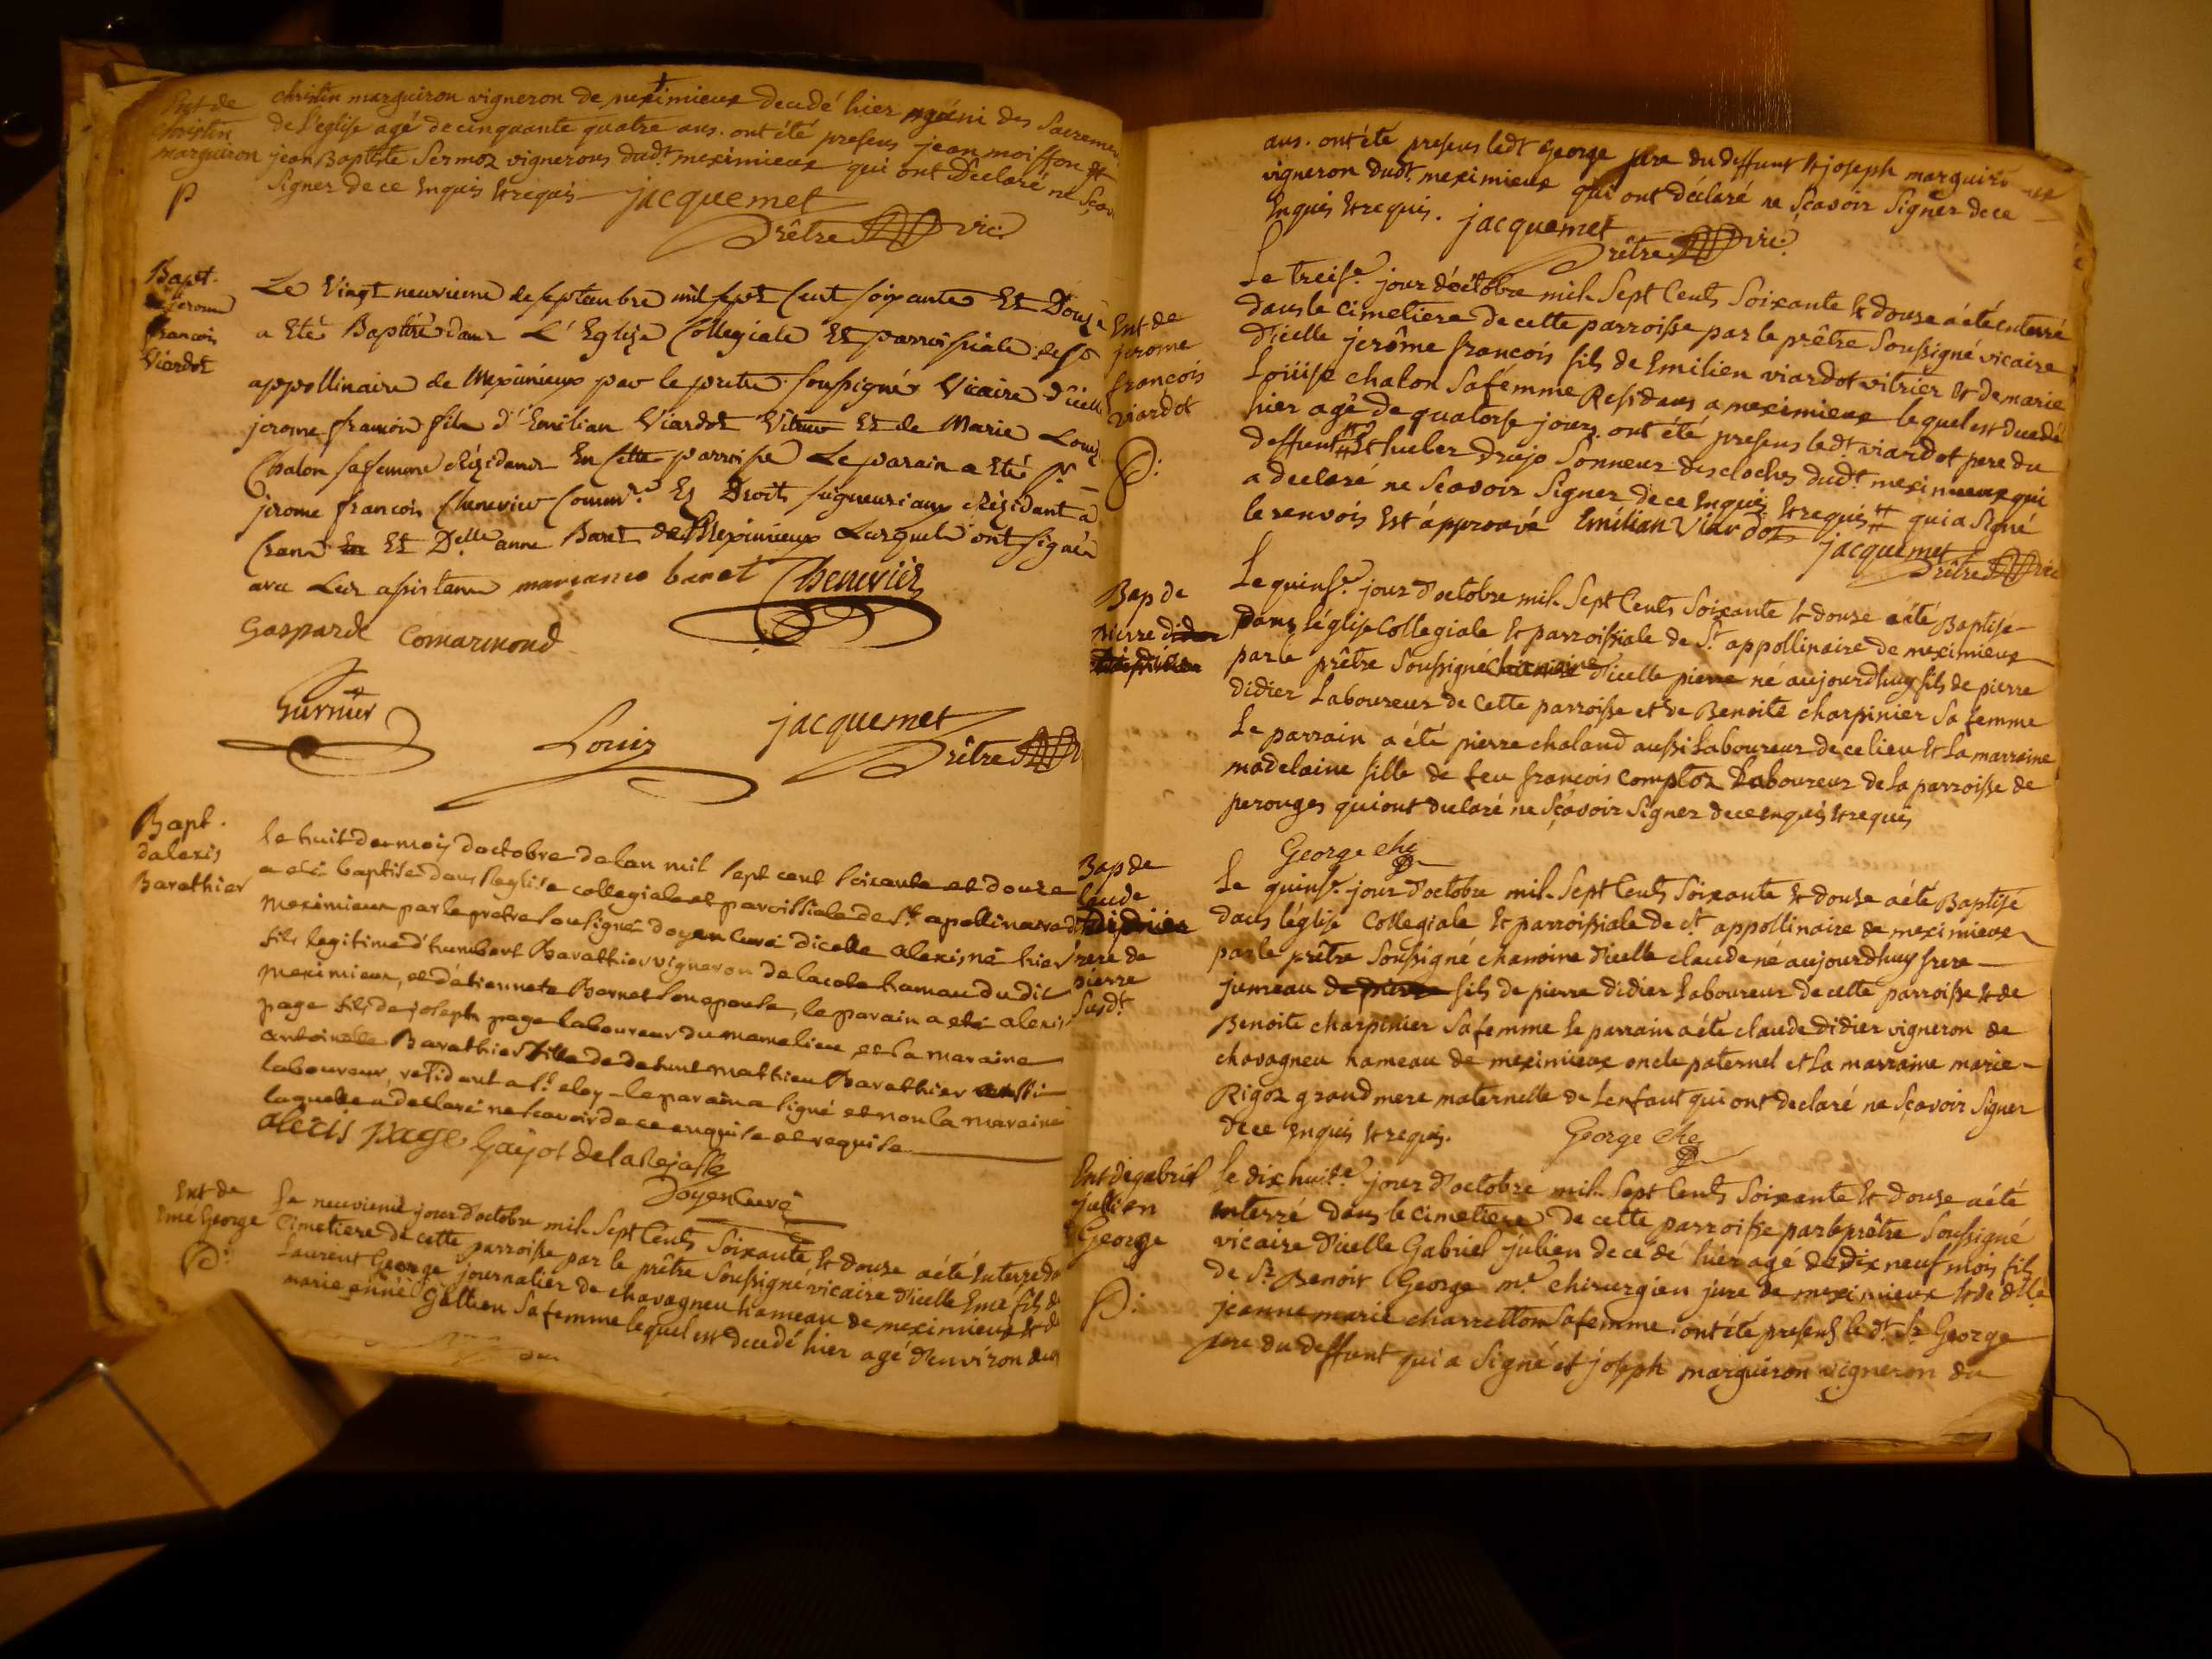 Ent de
christin
marguiron
P
christin marguiron vigneron de meximieux decedé hier muni des Sacremen
de l'eglise agé de cinquante quatre ans. ont été presens jean moisson &
jean Baptiste Sermoz vignerons dudt. meximieux qui ont déclaré ne Sçav
Signer de ce Enquis & requis jacquemet
Prêtre vic:
Bapt.
jerome
francois
Viardot
Le Vingt neuvieme de septembre mil sept Cent soixante Et Douze
a Eté Baptisé dans L'Eglise Collegiale Et parroissiale de St
appollinaire de Meximieux par le pretre soussigné Vicaire d'icelle
jerome francois fils d'Emilian Viardot Vitrier Et de Marie Louise
Chalon sa femme Résidans En cette parroisse Le parain a Eté Sr
jerome francois Chenevier Commre. Es Droits seigneuriaux Résidant a
Crans Et Delle anne Baret de Meximieux Lesquels ont signés
avec Les assistans marianne baret Chenevier
Gaspard Comarmond
Gurnier Louis jacquemet
Prêtre
Bapt.
dalexis
Barathier
le huit du moy doctobre de lan mil sept cent soixante et douze
a eté baptisé dans leglise collegiale et paroissiale de St apollinaire de
Meximieux par le pretre sousigné doyen curé dicelle alexis né hier
fils legitime d'humbert Barathier vigneron de la cote hamau du dit
Meximieux, et détiennete Bernet son epouse, le parain a eté alexis
page fils de joseph page laboureur du meme lieu et la maraine
antoinette Barathier fille de defunt mathieu Barathier aussi
laboureur, resident a St. eloy - le parain a signé et non la maraine
laquelle a declaré ne scavoir de ce enquise et requise
alecis page Gayot de la Rejasse
Doyen Curé
Ent de
Emé George
P:
Le neuvieme jour d'octobre mil Sept Cents Soixante & douze a été Enterré da
Cimetiere de cette parroisse par le prêtre Soussigné vicaire d'icelle Emé fils de
Laurent George journalier de chavagneu hameau de meximieux & de
marie anne Gallien Sa femme lequel est decedé hier agé d'environ deux
ans. ont été presens ledt George pere du deffunt & joseph marguiron
vigneron dudt. meximieux qui ont déclaré ne Sçavoir Signer de ce
Enquis & requis. jacquemet
Prêtre vic:
Ent de
jerome
francois
viardot
P:
Le treise. jour d'octobre mil Sept Cents Soixante & douze a été enterré
dans le Cimetiere de cette parroisse par le prêtre Soussigné vicaire
d'icelle jerôme francois fils de Emilien viardot vitrier & de marie
Loüise chalon Sa femme Residans a meximieux lequel est decedé
hier agé de quatorse jours. ont été presens ledt. viardot pere du
deffunt & huber drujo Sonneur des cloches dudt. meximieux qui
a declaré ne Scavoir Signer de ce Enquis & requis qui a Signé
le renvois Est approuvé Emilian Viardot jacquemet
Prêtre vic
Bap de
pierre
Le quinse. jour d'octobre mil Sept Cents Soixante & douse a été Baptisé
Dans léglise Collegiale & parroissiale de St. appollinaire de meximieux
par le prêtre Soussigné d'icelle pierre né aujourdhuy fils de pierre
didier Laboureur de Cette parroisse et de Benoite charpinier Sa femme
Le parrain a été pierre chaland aussi Laboureur de ce lieu & La marraine
madelaine fille de feu francois Comptoz Laboureur de La parroisse de
perouges qui ont declaré ne Sçavoir Signer de ce enquis & requis
George che
Bap de
laude
didier
rere de
pierre
Susdt.
Le quinse. jour d'octobre mil Sept Cents Soixante & douse a été Baptisé
dans léglise Collegiale & parroissiale de St appollinaire de meximieux
par le prêtre Soussigné chanoine d'icelle claude né aujourdhuy frere
jumeau de pierre fils de pierre didier Laboureur de cette parroisse & de
Benoite charpinier Sa femme le parrain a été claude didier vigneron de
chavagneu hameau de meximieux oncle paternel et La marraine marie
Rigoz grand mere maternelle de Lenfant qui ont declaré ne Sçavoir Signer
de ce enquis & requis. George che
Ent de gabriel
jullien
George
P:
Le dix huite. jour d'octobre mil Sept Cents Soixante & douse a été
enterré dans le Cimetiere de cette parroisse par le prêtre Soussigné
vicaire d'icelle Gabriel julien decedé hier agé de dix neuf mois fils
de Sr. Benoit George me. chirurgien juré de meximieux & de dlle
jeanne marie charretton Sa femme ont été presens le dt. Sr George
pere du deffunt qui a Signé et joseph marguiron vigneron du